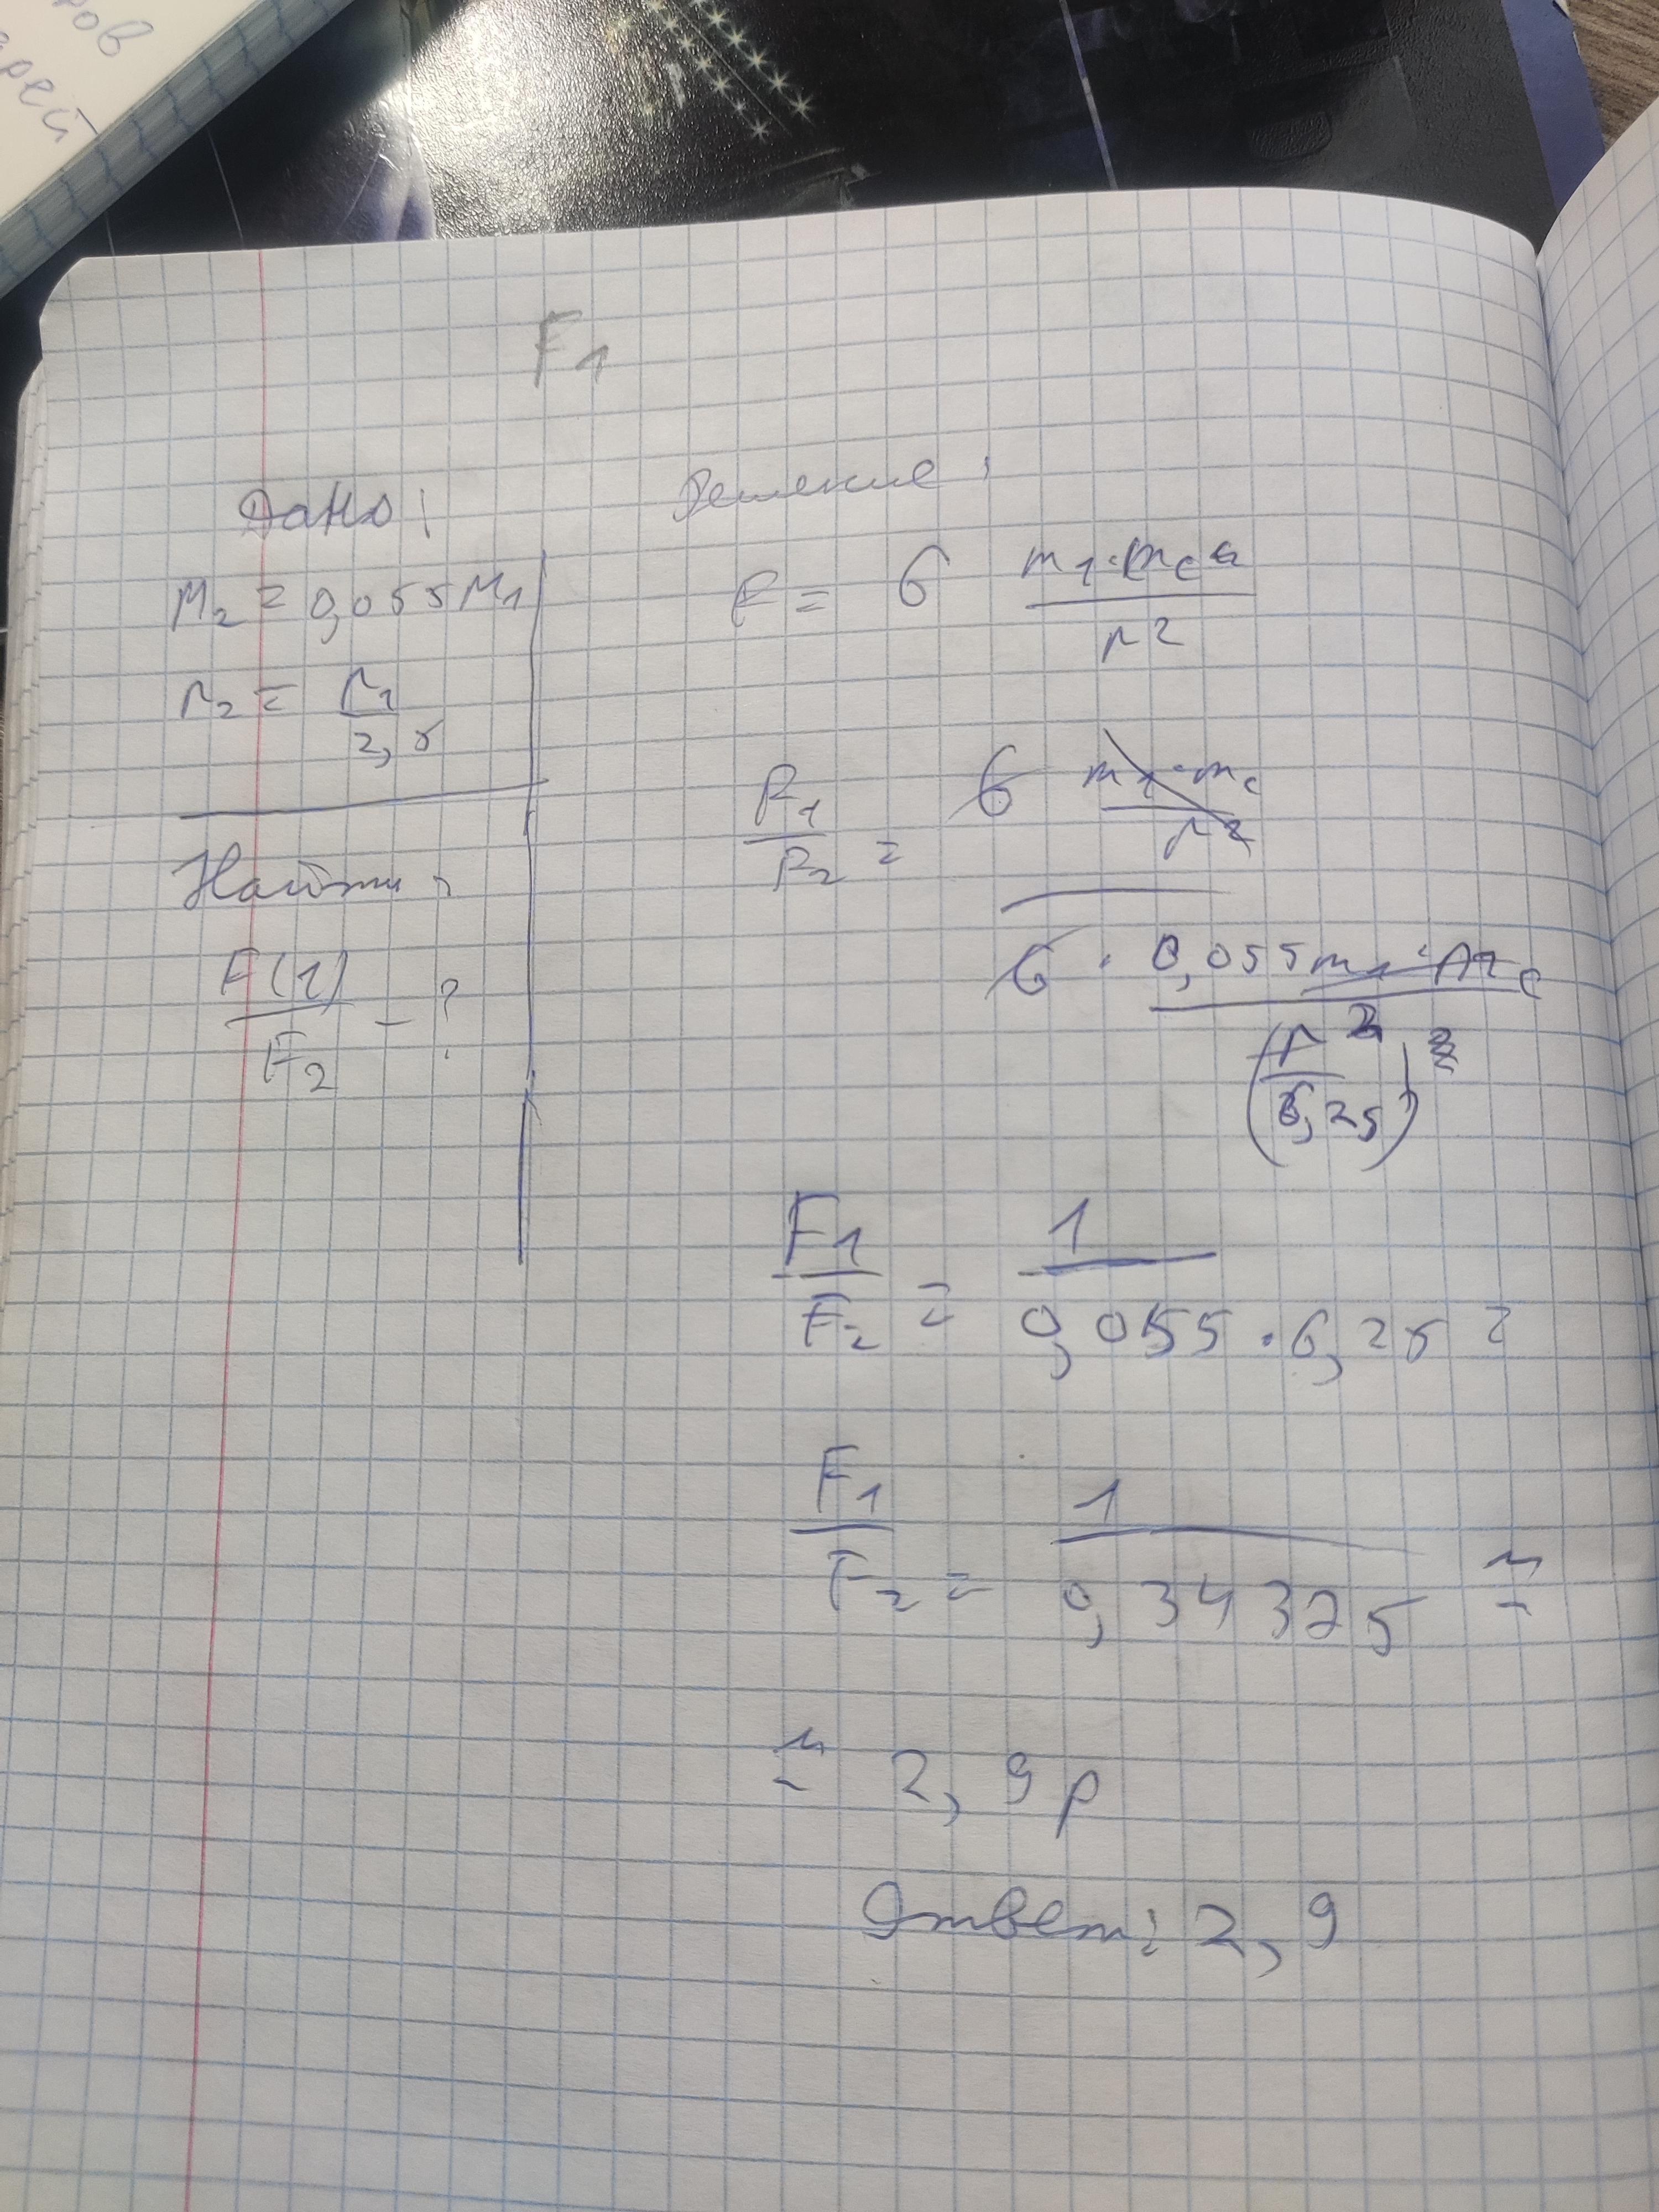 ров
арей
F₁
Дано:
M₂ = 0,055 M₁
r₂ = r₁/2,5
Найти:
F(1)/F₂ - ?
Решение:
F = G (m₁·m_c)/r²
F₁/F₂ = (G (m₁·m_c)/r²)/(G · (0,055 m₁·m_c)/(r²/6,25))
F₁/F₂ = 1/(0,055·6,25) =
F₁/F₂ = 1/0,34375 ≈
≈ 2,9 р
Ответ: 2,9